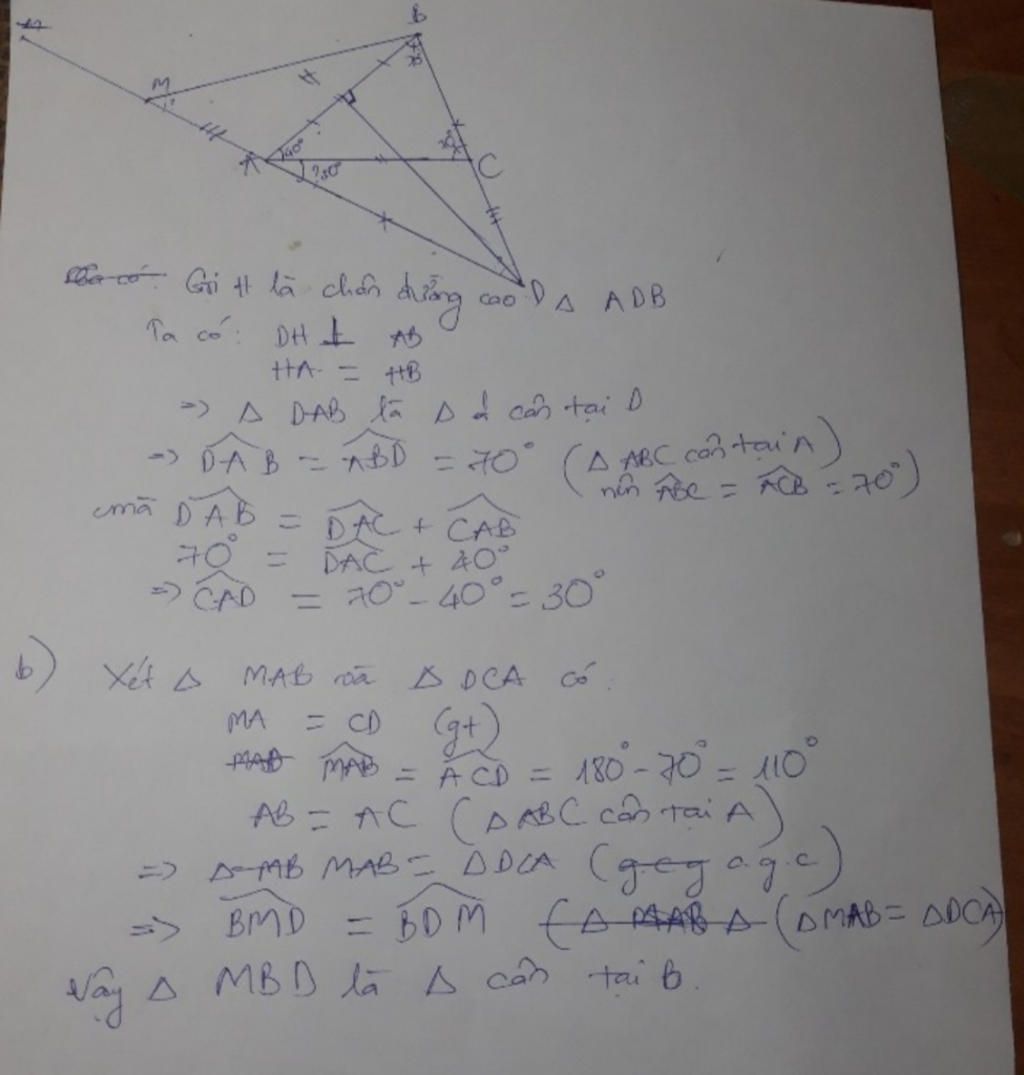 B
M
70°
A
40°
?30°
70°
C
D
Gọi H là chân đường cao D △ ADB
Ta có: DH ⊥ AB
HA = HB
=> △ DAB là △ cân tại D
=> DAB = ABD = 70° (△ ABC cân tại A)
nên ABC = ACB = 70°)
mà DAB = DAC + CAB
70° = DAC + 40°
=> CAD = 70° - 40° = 30°
b) Xét △ MAB và △ DCA có:
MA = CD (gt)
MAB = ACD = 180° - 70° = 110°
AB = AC (△ ABC cân tại A)
=> △ MAB = △ DCA (c.g.c)
=> BMD = BDM (△ MAB = △ DCA)
Vậy △ MBD là △ cân tại B.